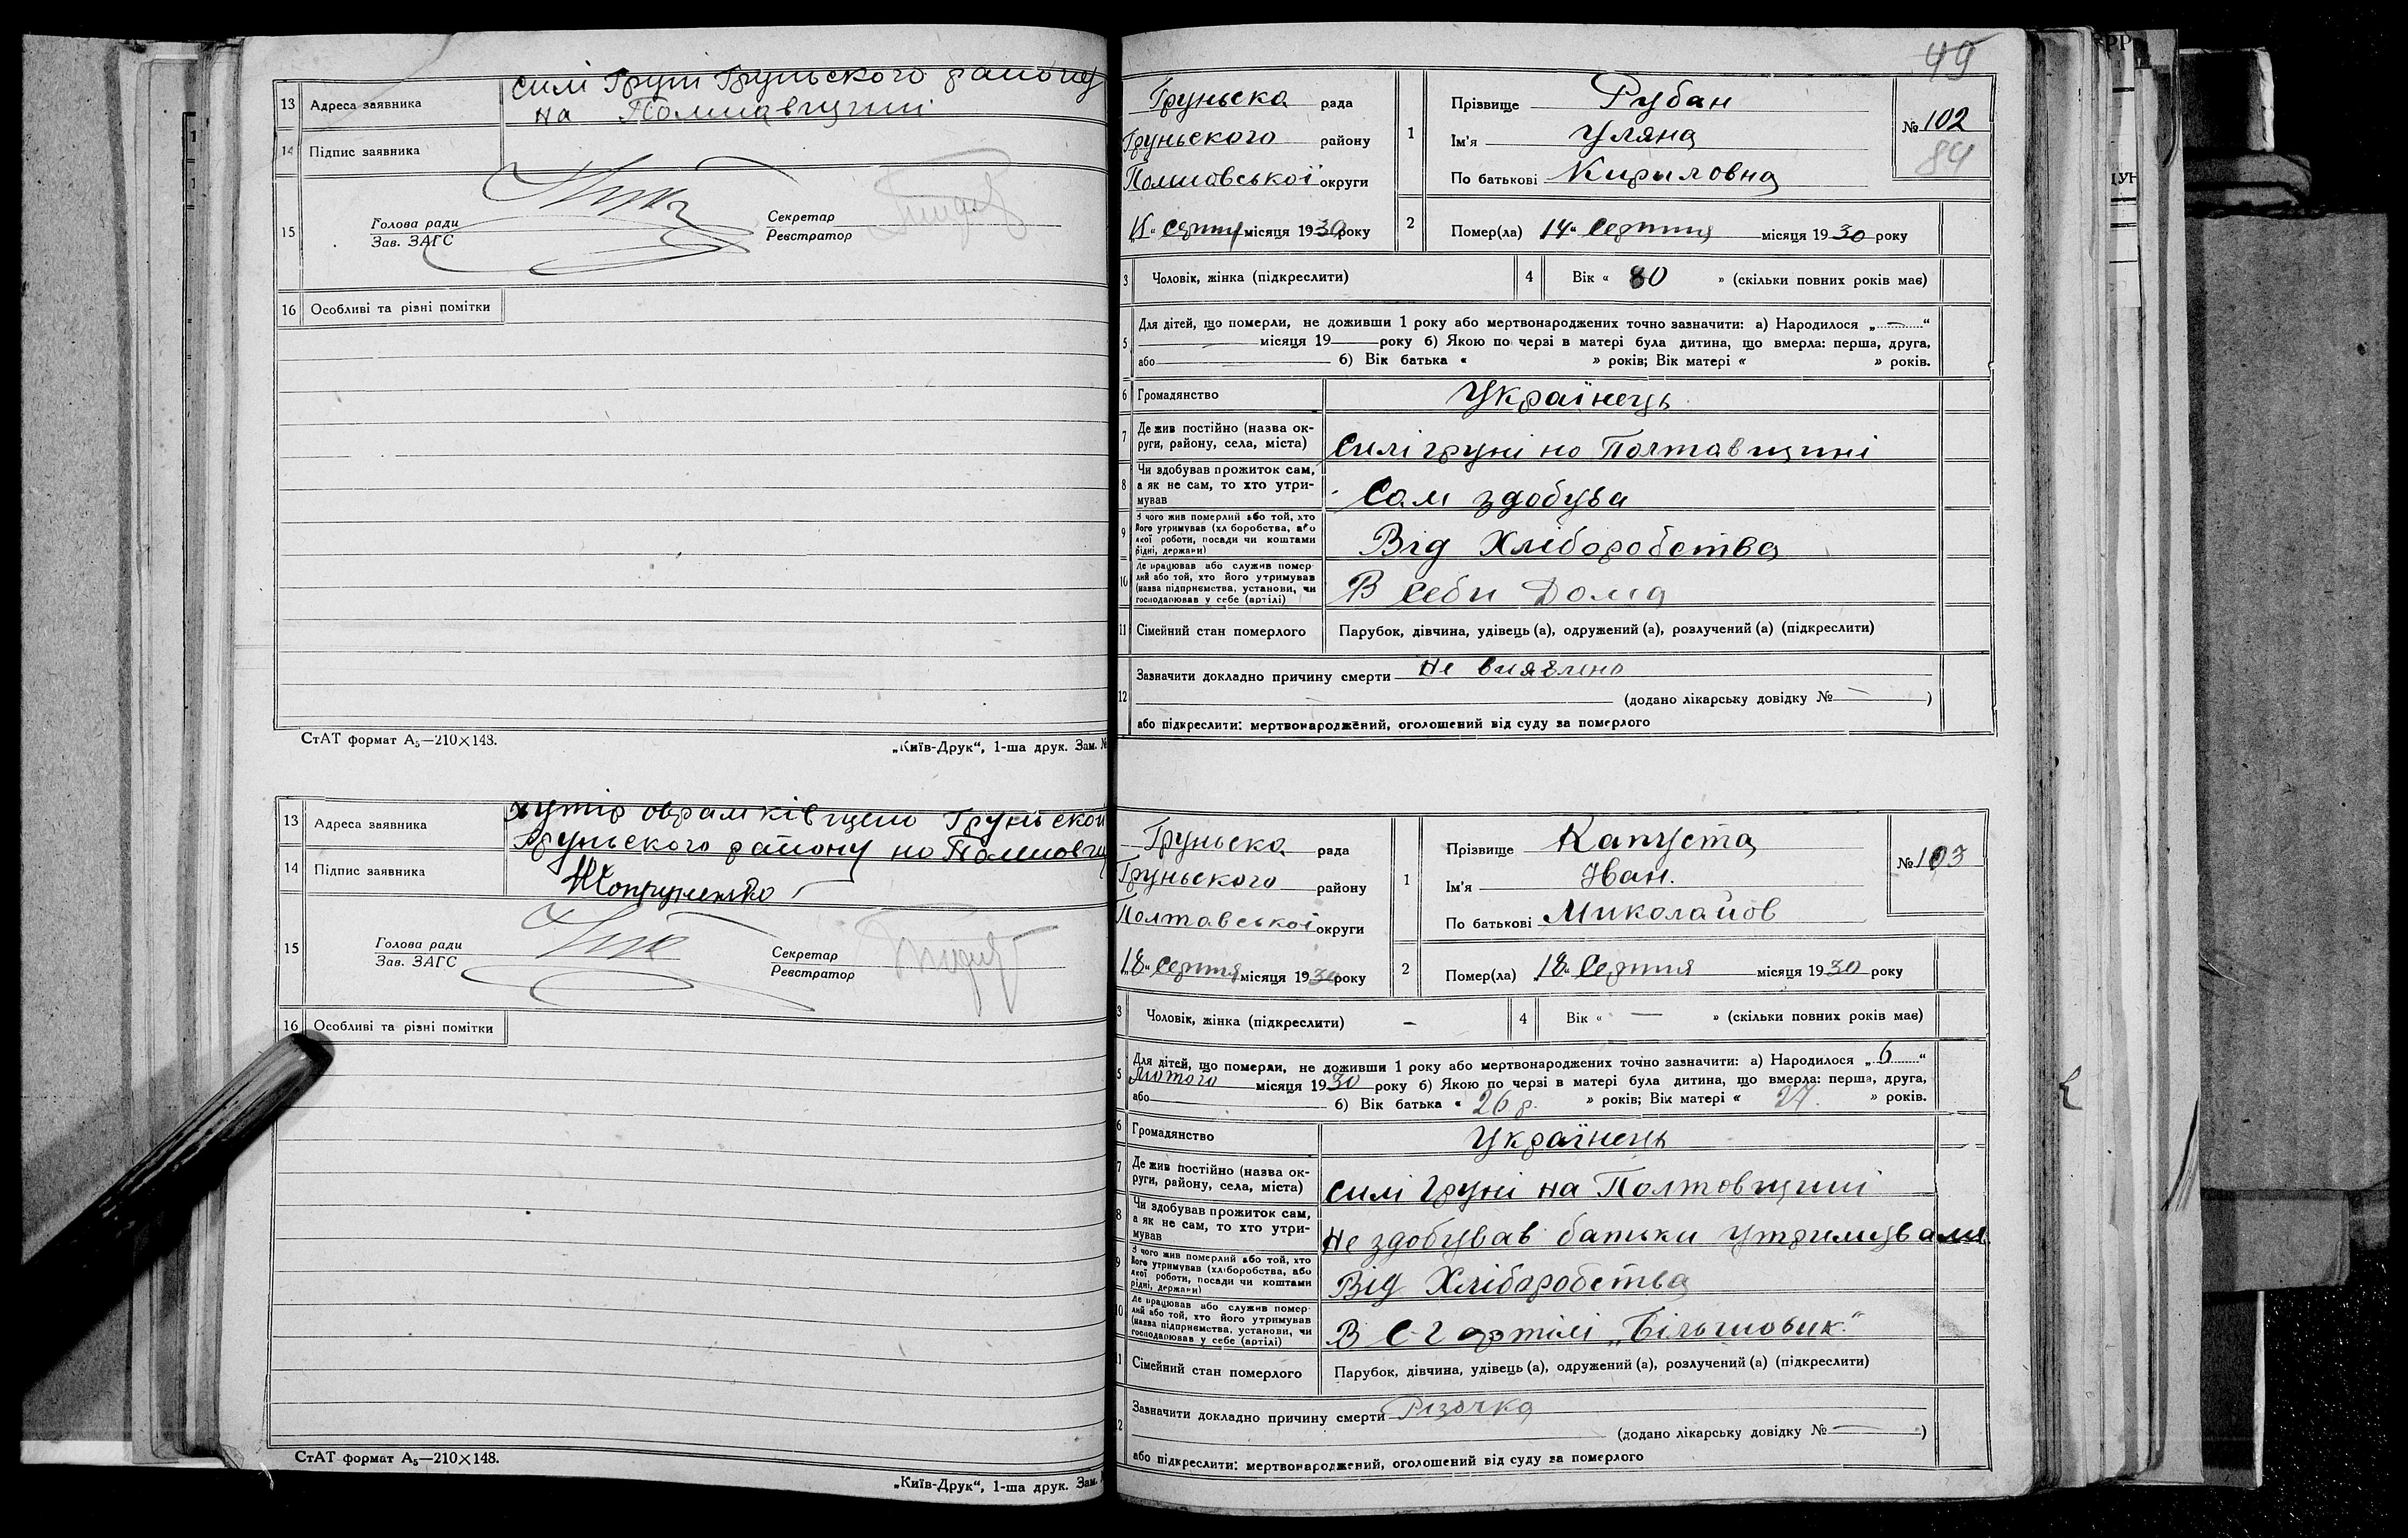 13 Адреса заявника
силі Груні Груньского району
на Полтавщині
14 Підпис заявника
15 Голова ради
Зав. ЗАГС
Секретар
Реєстратор
16 Особливі та різні помітки
СтАТ формат А₅—210×148.
„Київ-Друк“, 1-ша друк. Зам. №
13 Адреса заявника
хутір Груньскої
Груньского району на Полтавщ
14 Підпис заявника
15 Голова ради
Зав. ЗАГС
Секретар
Реєстратор
16 Особливі та різні помітки
СтАТ формат А₅—210×148.
„Київ-Друк“, 1-ша друк. Зам.
49
Груньска рада
Груньского району
Полтавської округи
серпня місяця 1930 року
1 Прізвище Рубан
Ім'я Уляна
По батькові Кириловна
№ 102
84
2 Помер(ла) 14 " Серпня місяця 1930 року
3 Чоловік, жінка (підкреслити)
4 Вік « 80 » (скільки повних років має)
5 Для дітей, що померли, не доживши 1 року або мертвонароджених точно зазначити: а) Народилося „ — “
— місяця 19 — року б) Якою по черзі в матері була дитина, що вмерла: перша, друга,
або — б) Вік батька « » років; Вік матері « » років.
6 Громадянство Українець
7 Де жив постійно (назва ок-
руги, району, села, міста) Силі груні но Полтавщині
8 Чи здобував прожиток сам,
а як не сам, то хто утри-
мував Сам здобува
9 З чого жив померлий або той, хто
його утримував (хліборобства, або
якої роботи, посади чи коштами
рідні, держави) Від Хліборобства
10 Де працював або служив помер-
лий або той, хто його утримував
(назва підприємства, установи, чи
господарював у себе (артілі) В себи Дома
11 Сімейний стан померлого Парубок, дівчина, удівець (а), одружений (а), розлучений (а) (підкреслити)
12 Зазначити докладно причину смерти Не виявлено
— (додано лікарську довідку № — )
або підкреслити: мертвонароджений, оголошений від суду за померлого
Груньска рада
Груньского району
Полтавської округи
„18" Серпня місяця 1930 року
1 Прізвище Капуста
Ім'я Іван.
По батькові Миколайов
№ 103
2 Помер(ла) „18" Серпня місяця 1930 року
3 Чоловік, жінка (підкреслити) –
4 Вік « — » (скільки повних років має)
5 Для дітей, що померли, не доживши 1 року або мертвонароджених точно зазначити: а) Народилося „ 6 “
Лютого місяця 1930 року б) Якою по черзі в матері була дитина, що вмерла: перша, друга,
або б) Вік батька « 26 р. » років; Вік матері « 27. » років.
6 Громадянство Українець
7 Де жив постійно (назва ок-
руги, району, села, міста) силі Груні на Полтовщині
8 Чи здобував прожиток сам,
а як не сам, то хто утри-
мував Не здобував батьки утримували
9 З чого жив померлий або той, хто
його утримував (хліборобства, або
якої роботи, посади чи коштами
рідні, держави) Від Хліборобства
10 Де працював або служив помер-
лий або той, хто його утримував
(назва підприємства, установи, чи
господарював у себе (артілі) В С-Г артілі „Більшовик."
11 Сімейний стан померлого Парубок, дівчина, удівець (а), одружений (а), розлучений (а) (підкреслити)
12 Зазначити докладно причину смерти Різачка
(додано лікарську довідку № — )
або підкреслити: мертвонароджений, оголошений від суду за померлого